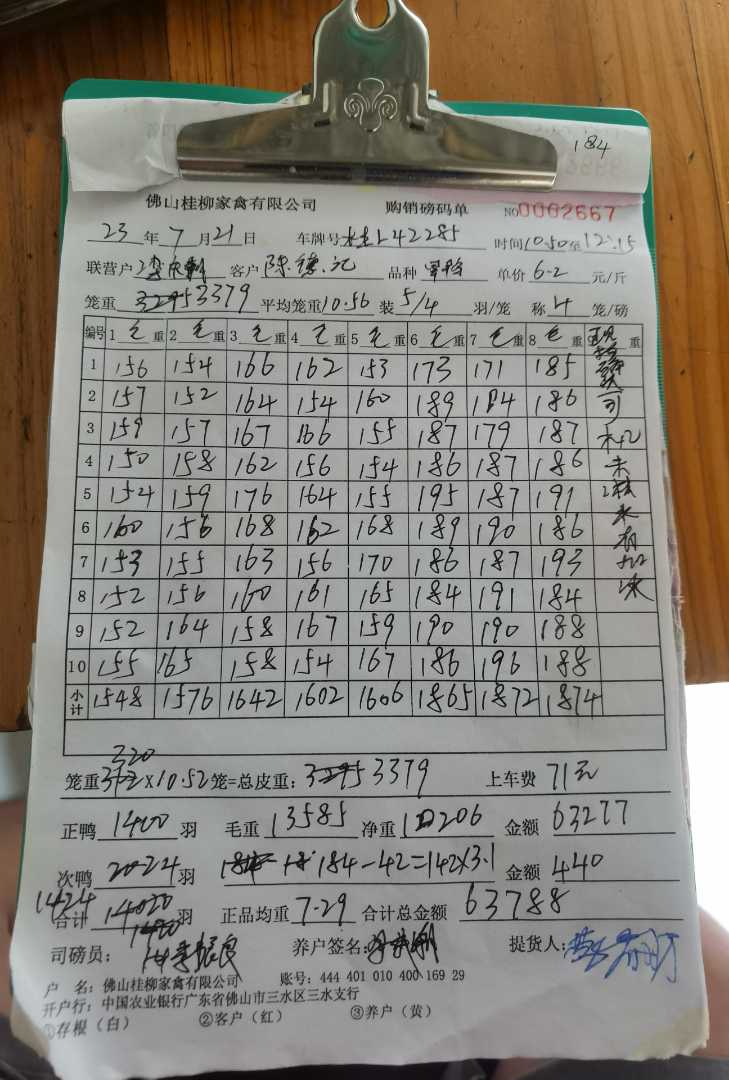 184
佛山桂柳家禽有限公司 购销磅码单 NO0002667
23年7月21日 车牌号 L42285 时间10.50至12.15
联营户 客户 陈德记 品种 单价 6-2 元/斤
笼重 3379 平均笼重10.56 装 5/4 羽/笼 称 4 笼/磅
编号 1 毛重 2 毛重 3 毛重 4 毛重 5 毛重 6 毛重 7 毛重 8 毛重 重
1 156 154 166 162 153 173 171 185
2 157 152 164 154 160 189 184 186
3 159 157 167 166 155 187 179 187
4 150 158 162 156 154 186 187 186
5 154 159 176 164 155 195 187 191
6 160 156 168 162 168 189 190 186
7 153 155 163 156 170 186 187 193
8 152 156 160 161 165 184 191 184
9 152 164 158 167 159 190 190 188
10 155 165 158 154 167 186 196 188
小计 1548 1576 1642 1602 1606 1865 1872 1874
320
笼重 X10.52笼=总皮重: 3379 上车费 71元
正鸭 1400 羽 毛重 13585 净重 10206 金额 63277
次鸭 24 羽 184-42=142X3.1 金额 440
1424
合计 羽 正品均重 7-29 合计总金额 63788
司磅员: 养户签名: 提货人:
户 名: 佛山桂柳家禽有限公司 账号: 444 401 010 400 169 29
开户行: 中国农业银行广东省佛山市三水区三水支行
①存根(白) ②客户(红) ③养户(黄)